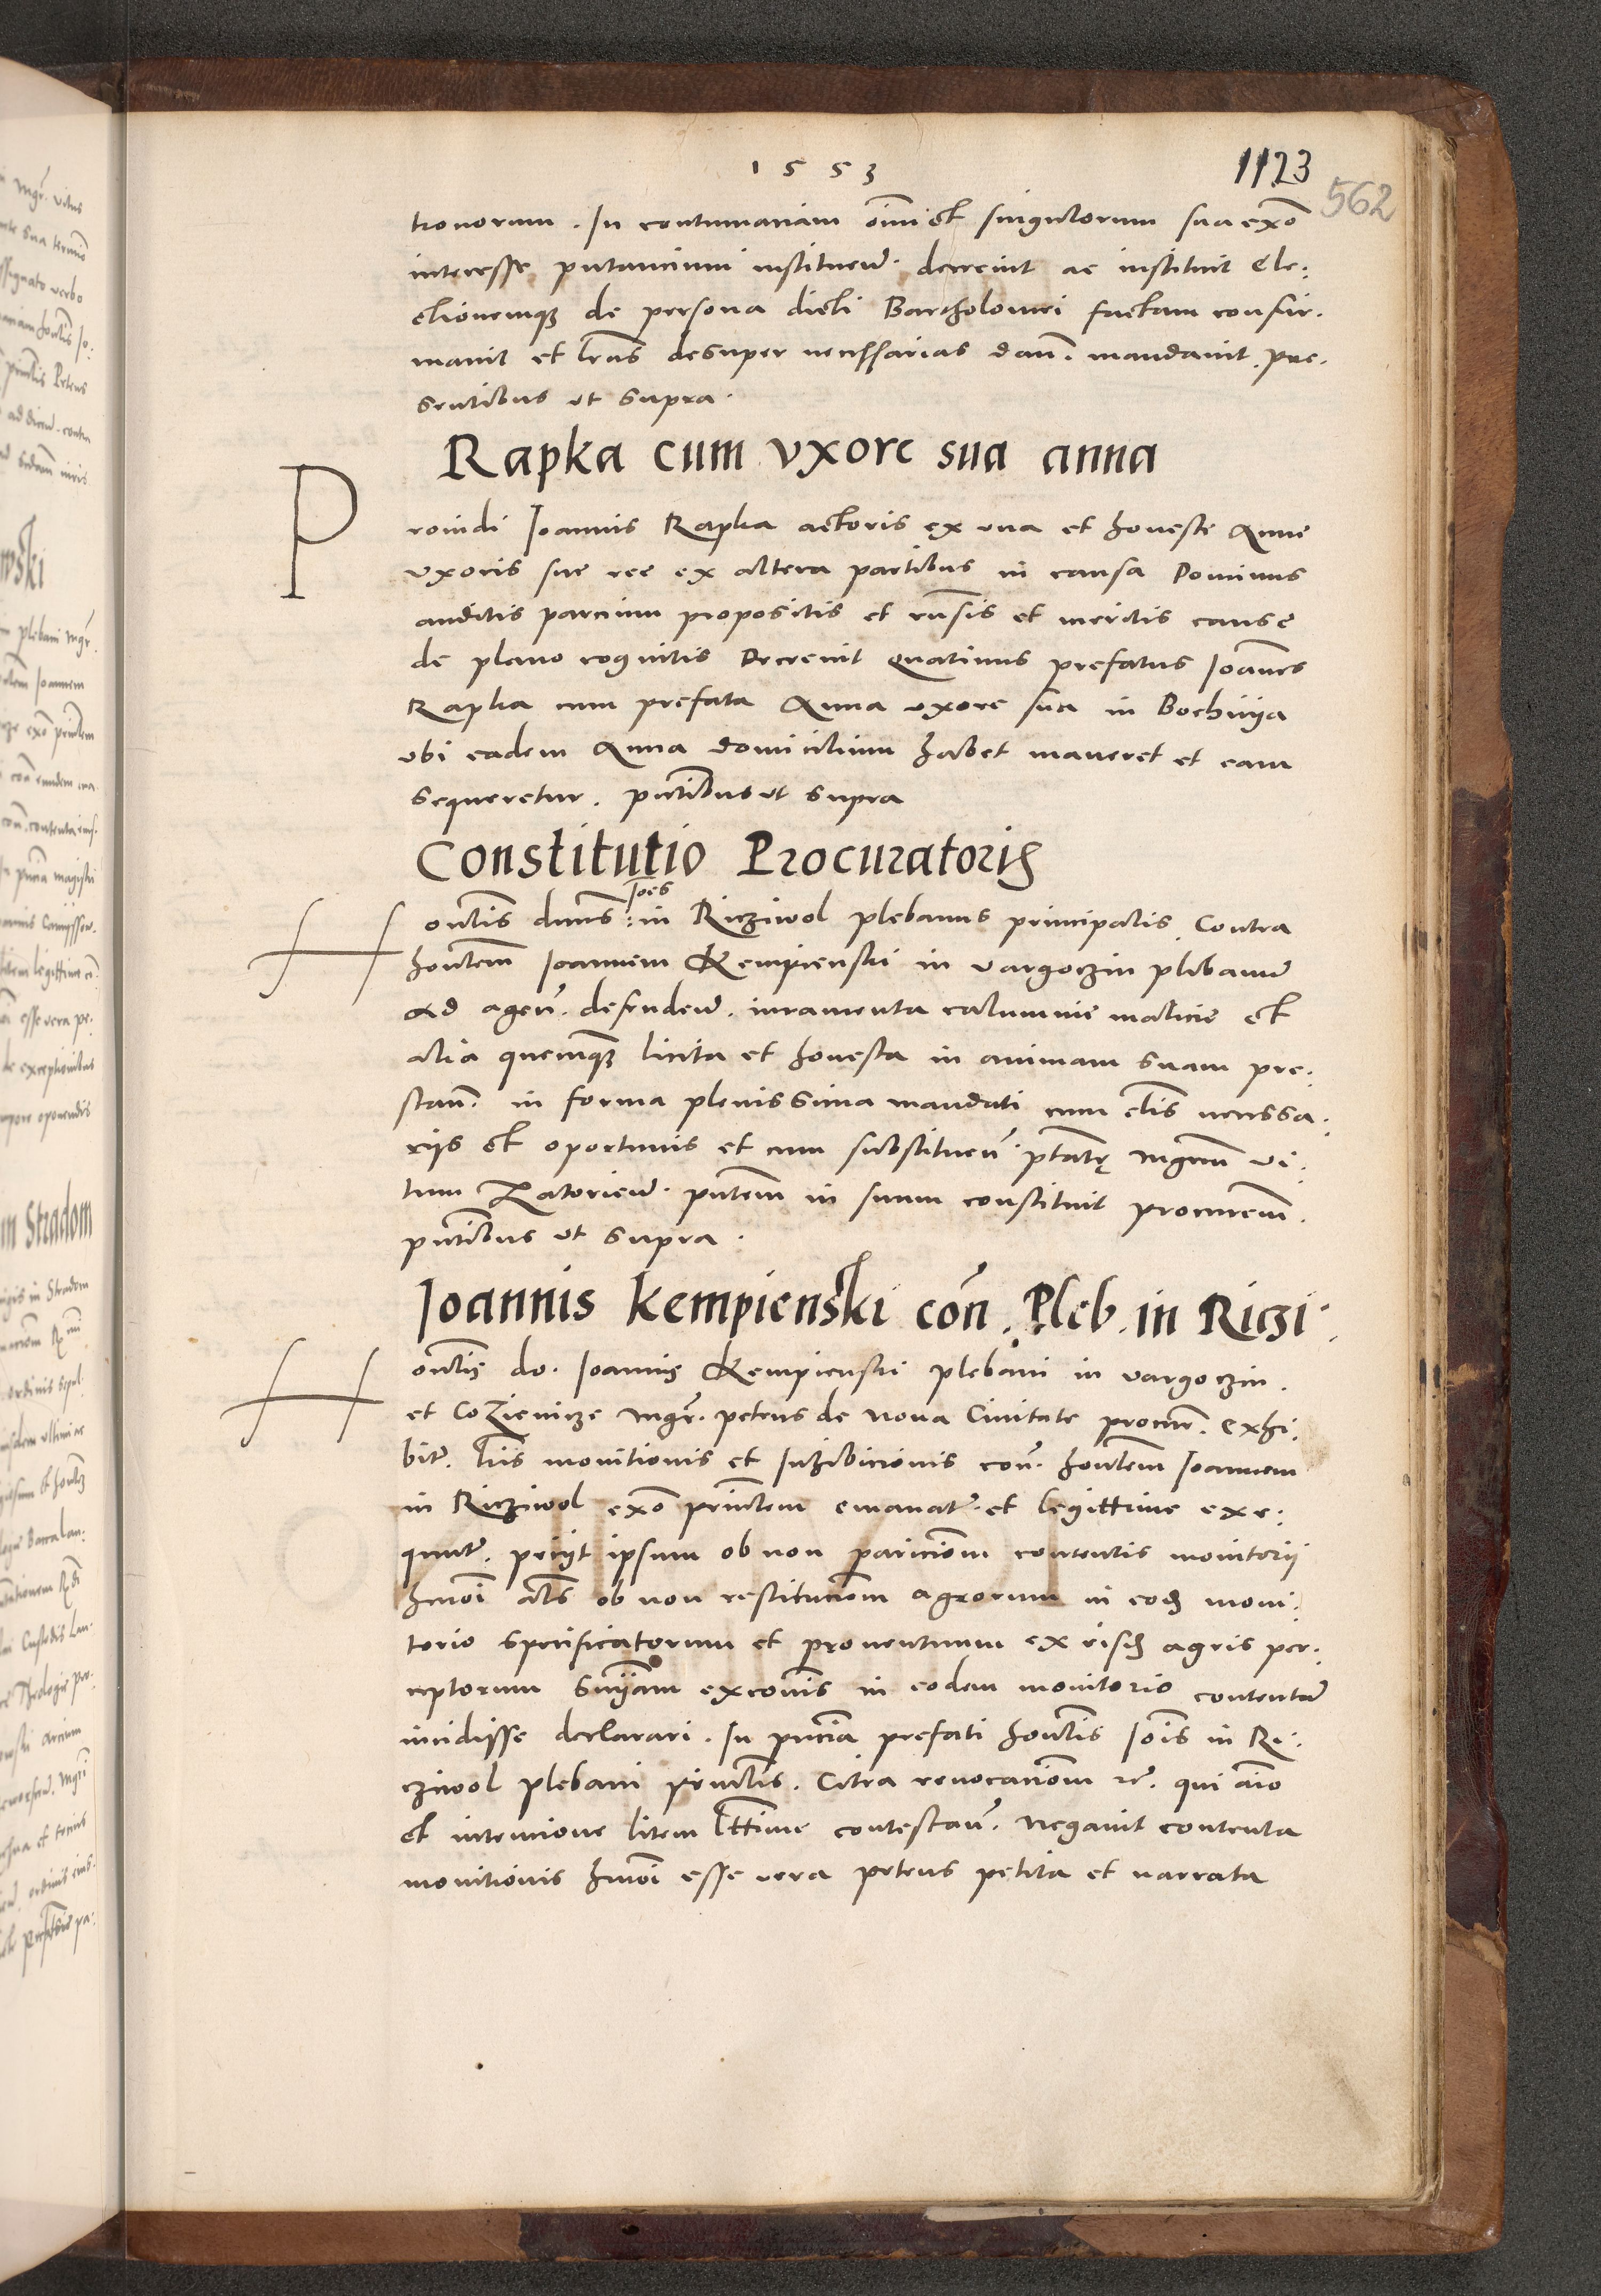 1553
1123
562
tronorum. In contumaciam om̄i et singulorum sua exō
interesse putancium instituen̄. decrevit ac instituit Ele:
ctionemqȝ de persona dicti Bartholomei factam confir.
mavit et l̄ras desuper necessarias dan̄. mandavit. pre.
sentibus ut supra.
Rapka cum vxore sua anna
Providi Joannis Rapka actoris ex una et honeste Anne
uxoris sue ree ex altera partibus in causa Dominus
auditis parcium propositis et rn̄sis et meritis cause
de plano cognitis Decrevit Quatinus prefatus Joannes
Rapka cum prefata Anna uxore sua in Bochnya
ubi eadem Anna domicilium habet maneret et eam
sequeretur. pn̄tibus ut supra
Constitutio Procuratoris
Joēs
Hon̄lis dnus: in Ricziwol plebanus principalis. Contra
hon̄lem Joannem Kempienski in Vargoczin plebanū
ad agen̄. defenden̄. iuramenta calumnie malicie et
alia quecunqȝ licita et honesta in animam suam pre:
stan̄. in forma plenissima mandati cum cl̄is necessa:
rijs et oportunis et cum substituen̄ ptāte mgr̄m Vi:
tum Zatorien̄. pn̄tem in suum constituit procurēm.
pn̄tibus ut supra.
Joannis Kempienski con̄. Pleb. in Riczi.
Hon̄lis do. Joannis Kempienski plebani in Vargoczin.
et Cozienicze Mgr̄. petrus de Nova Civitate procur̄. Exhi:
bit̄. l̄ris monitionis et Inhibicionis con̄. hon̄lem Joannem
in Ricziwol exō prin̄lem emanat̄. et legittime exe:
qunt̄. peciit ipsum ob non paricionem contentis monitorii
hmōi als ob non restitucionem agrorum in eodē moni:
torio specificatorum et proventuum ex eisdē agris per:
ceptorum sn̄iam excōnis in eodem monitorio contentā
incidisse declarari. In pn̄cia prefati hon̄lis Jōis in Ri:
cziwol plebani prin̄lis. Citra revocacionem ec̄. qui aīo
et intencione litem l̄ttime contestan̄. Negavit contenta
monitionis hmōi esse vera petens petita et narrata